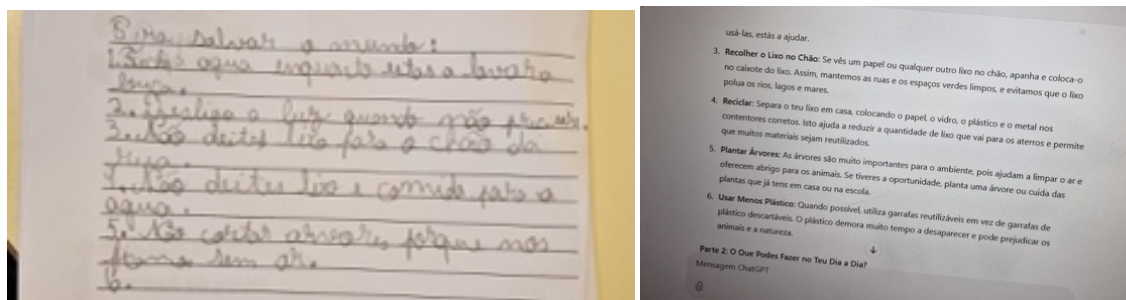 Para salvar o mundo:
1. Fecha agua enquanto estas a lavar a
louça.
2. Desliga a luz quando não precisares.
3. Não deites lixo para o chão da
rua.
4. Não deites lixo e comida para a
agua.
5. Não cortar arvores, porque nos
ficamos sem ar.
6.
usá-las, estás a ajudar.
3. Recolher o Lixo no Chão: Se vês um papel ou qualquer outro lixo no chão, apanha e coloca-o
no caixote do lixo. Assim, mantemos as ruas e os espaços verdes limpos, e evitamos que o lixo
polua os rios, lagos e mares.
4. Reciclar: Separa o teu lixo em casa, colocando o papel, o vidro, o plástico e o metal nos
contentores corretos. Isto ajuda a reduzir a quantidade de lixo que vai para os aterros e permite
que muitos materiais sejam reutilizados.
5. Plantar Árvores: As árvores são muito importantes para o ambiente, pois ajudam a limpar o ar e
oferecem abrigo para os animais. Se tiveres a oportunidade, planta uma árvore ou cuida das
plantas que já tens em casa ou na escola.
6. Usar Menos Plástico: Quando possível, utiliza garrafas reutilizáveis em vez de garrafas de
plástico descartáveis. O plástico demora muito tempo a desaparecer e pode prejudicar os
animais e a natureza.
Parte 2: O Que Podes Fazer no Teu Dia a Dia?
Mensagem ChatGPT